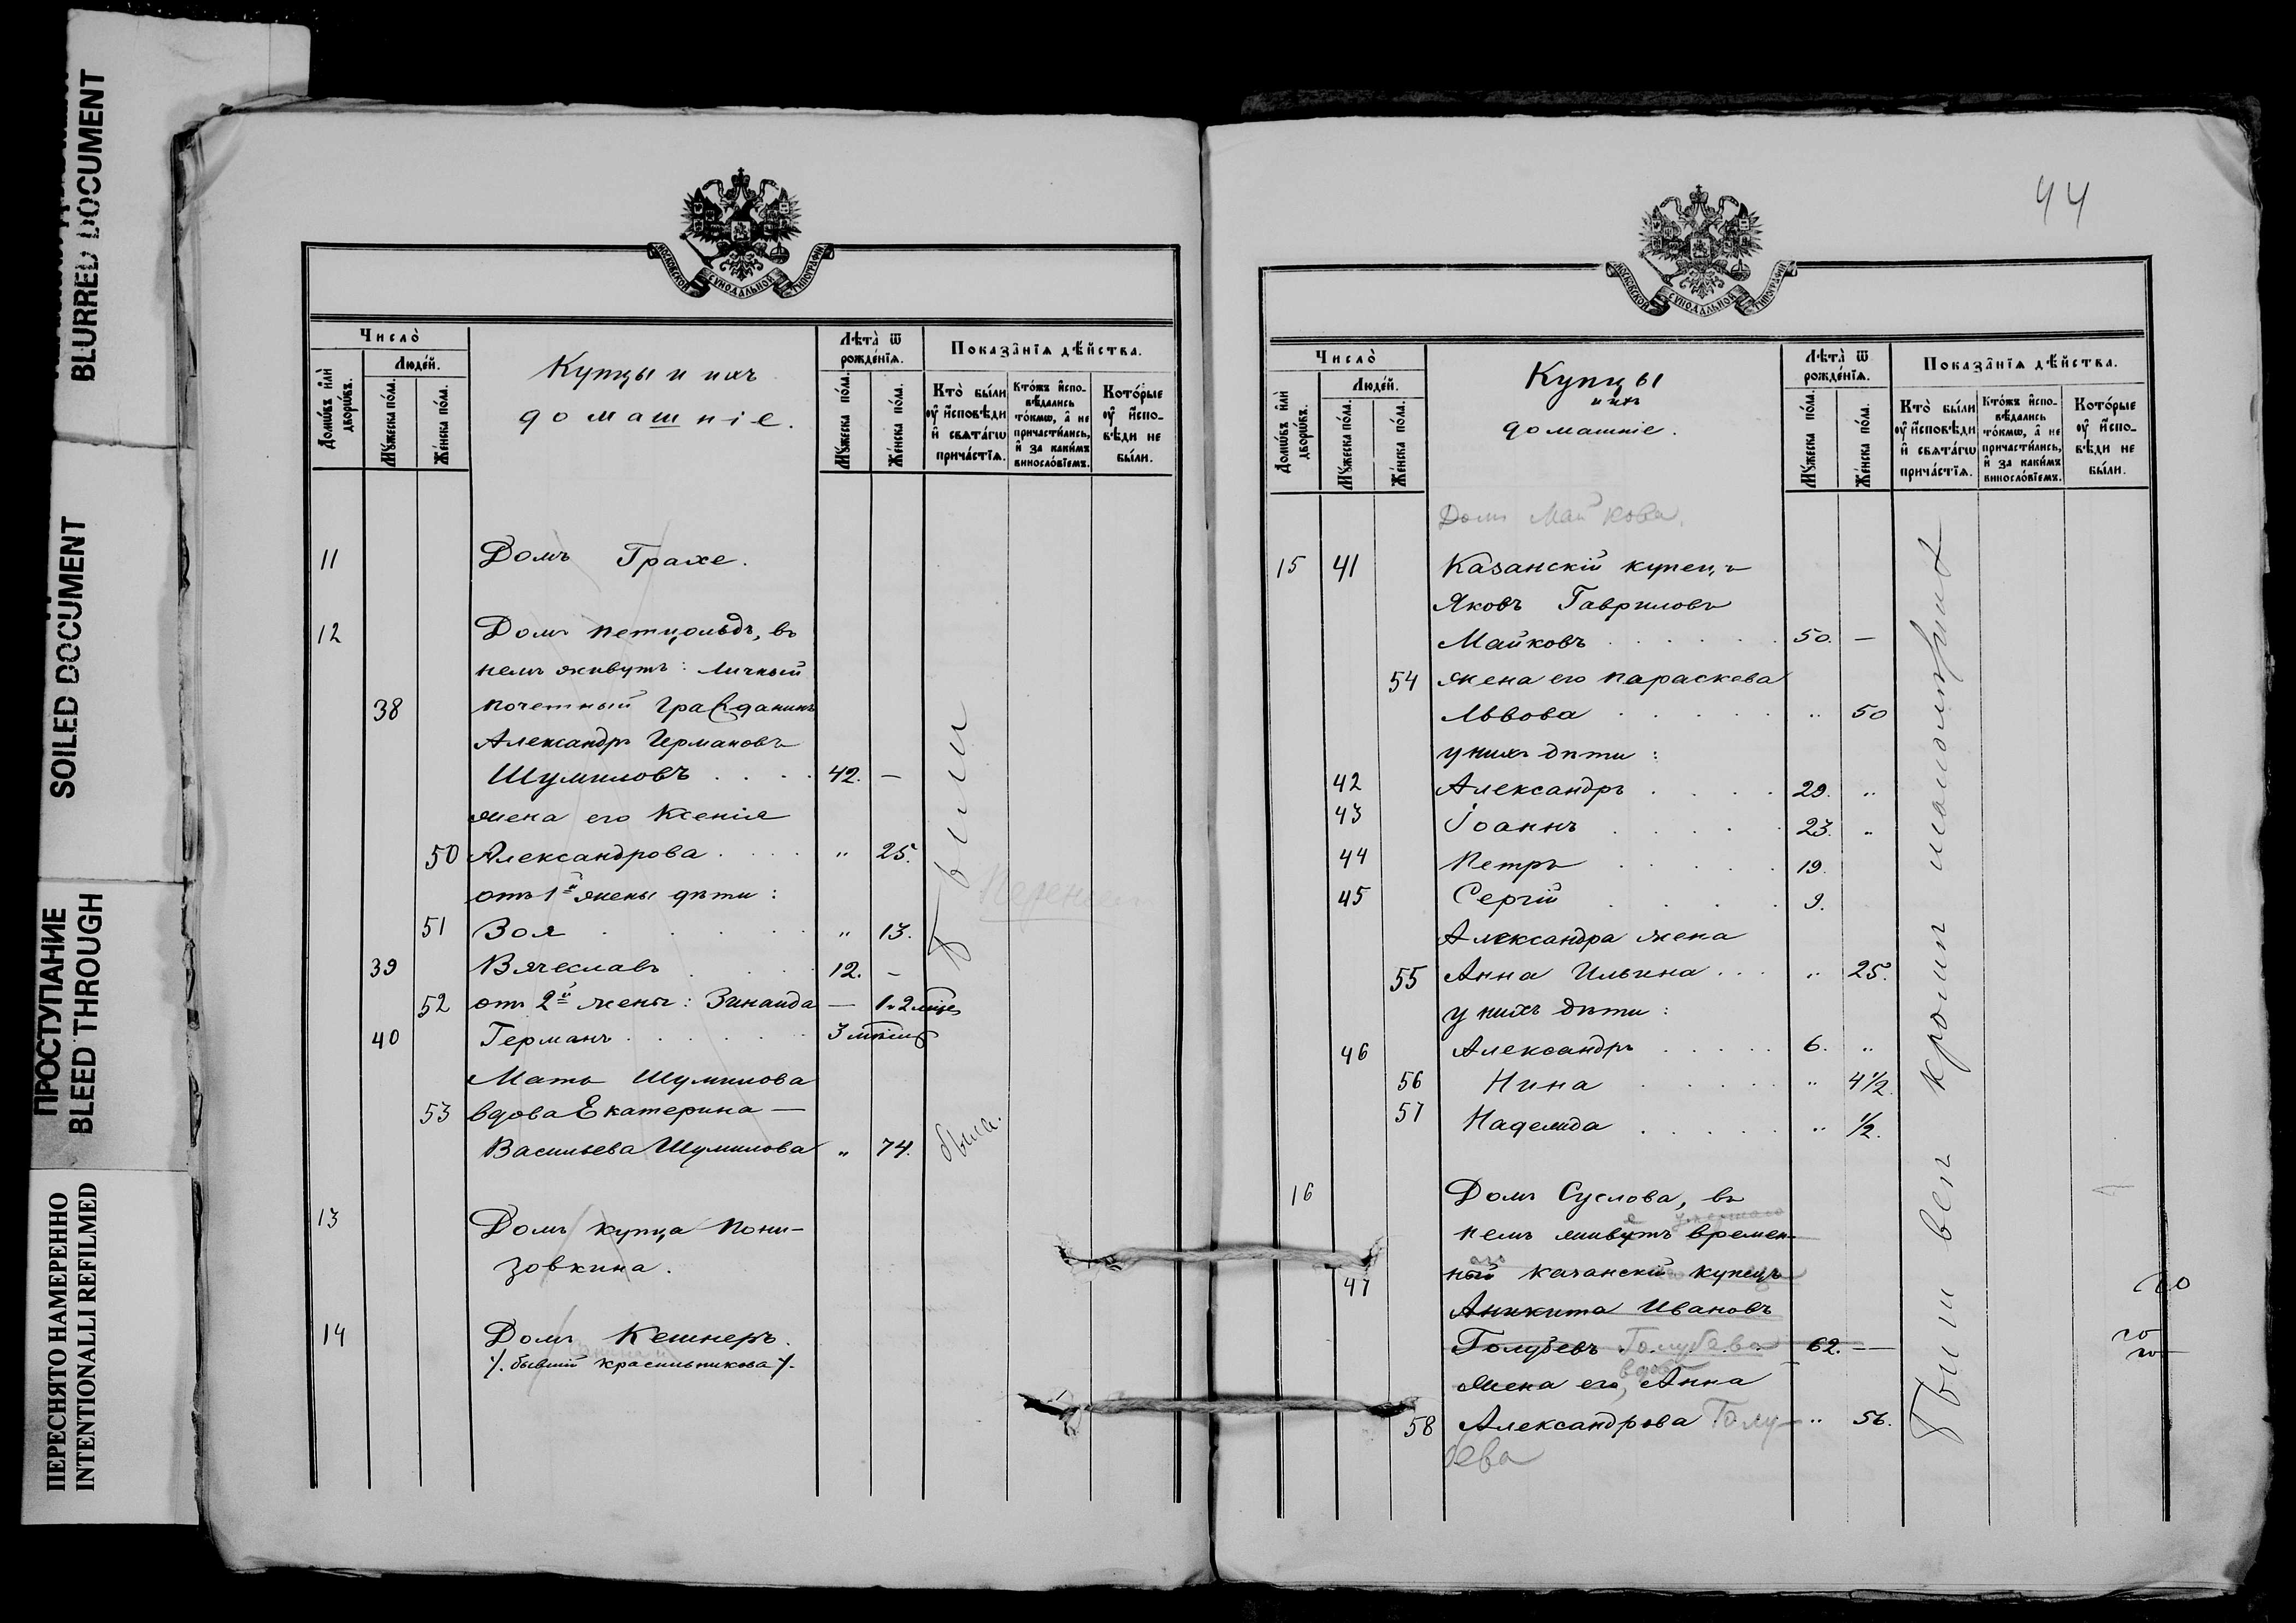 BLURRED DOCUMENT
SOILED DOCUMENT
ПРОСТУПАНИЕ
BLEED THROUGH
ПЕРЕСНЯТО НАМЕРЕННО
INTENTIONALLI REFILMED
МОСКОВСКОЙ СУНОДАЛЬНОЙ ТИПОГРАФІИ
Число̀
Домѡ́въ и҆лѝ дворѡ́въ.
Люде́й.
Мꙋ́жеска по́ла.
Же́нска по́ла.
Купцы и ихъ
домашніе.
Лѣта̀ ѿ рожде́нїѧ.
Мꙋ́жеска по́ла.
Же́нска по́ла.
Показа̑нїѧ дѣ́йства.
Кто̀ бы́ли
ᲂу҆ и҆сповѣ́ди
и҆ свѧта́гѡ
прича́стїѧ.
Кто́жъ и҆спо-
вѣ́дались
то́кмѡ, а҆ не
причасти́лись,
и҆ за каки́мъ
виносло́вїемъ.
Кото́рые
ᲂу҆ и҆спо-
вѣ́ди не
бы́ли.
11 Домъ Грахе.
12 Домъ Петцольдъ, въ
немъ живутъ: Личный
38 почетный гражданинъ
Александръ Германовъ
Шумиловъ . . . . 42. —
жена его Ксенія
50 Александрова . . . . " 25.
отъ 1й жены дѣти:
51 Зоя . . . . . " 13.
39 Вячеславъ . . . 12. -
52 отъ 2й жены: Зинаида —
40 Германъ . . . . . . 3 мѣсяц
Мать Шумилова
53 вдова Екатерина —
Васильева Шумилова " 74.
были
была.
13 Домъ купца Пони-
зовкина.
14 Домъ Кешнеръ.
/. бывшій красильникова /.
44
МОСКОВСКОЙ СУНОДАЛЬНОЙ ТИПОГРАФІИ
Число̀
Домѡ́въ и҆лѝ дворѡ́въ.
Люде́й.
Мꙋ́жеска по́ла.
Же́нска по́ла.
Купцы
и ихъ
домашніе.
Лѣта̀ ѿ рожде́нїѧ.
Мꙋ́жеска по́ла.
Же́нска по́ла.
Показа̑нїѧ дѣ́йства.
Кто̀ бы́ли
ᲂу҆ и҆сповѣ́ди
и҆ свѧта́гѡ
прича́стїѧ.
Кто́жъ и҆спо-
вѣ́дались
то́кмѡ, а҆ не
причасти́лись,
и҆ за каки́мъ
виносло́вїемъ.
Кото́рые
ᲂу҆ и҆спо-
вѣ́ди не
бы́ли.
Домъ Майкова.
15 41 Казанскій купецъ
Яковъ Гавриловъ
Майковъ . . . . . . 50. —
54 жена его Параскева
Львова . . . . . " 50
у нихъ дѣти:
42 Александръ . . . . 29. "
43 Іоаннъ . . . . . 23. "
44 Петръ . . . . 19.
45 Сергій . . . . 9.
Александра жена
55 Анна Ильина . . . " 25.
у нихъ дѣти:
46 Александръ . . . . . 6. "
56 Нина . . . . . " 4 1/2.
57 Надежда . . . . . " 1/2.
Были всѣ кромѣ малолѣтнихъ
16 Домъ Суслова, въ
умершаго
немъ живутъ времен-
47 ный казанскій купецъ
Аникита Ивановъ
Голубевъ Голубева 62. —
вдова
жена его, Анна
58 Александрова Голу- " 56.
бева